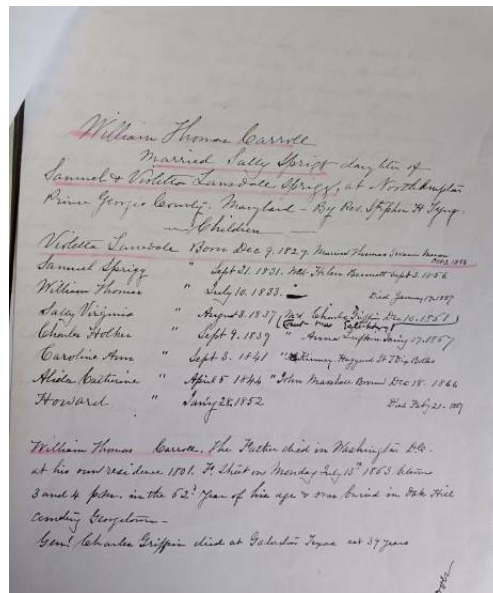 William Thomas Carroll
Married Sally Sprigg daughter of
Samuel & Violetta Lansdale Sprigg, at Northampton
Prince Georges County - Maryland - By Rev. Stephen H Tyng.
Children
Violetta Lansdale Born Dec 9. 1827. Married Thomas Swann Mercer
Samuel Sprigg " Sept 21. 1831. Helen Bennett Sept 3. 1856
William Thomas " July 10. 1833. Died January 17. 1857
Sally Virginia " August 3. 1837 (Md Charles Griffin Dec 10. 1861)
Charles Holker " Sept 9. 1839 " Anne
Caroline Ann " Sept 3. 1841 " Kinney,
Alida Catherine " April 5 1844 " John Marshall Brown Dec 18. 1866
Howard " Jan'y 28. 1852 Died Feb'y 21 -
William Thomas Carroll. The Father died in Washington D.C.
at his own residence 1801. F. Street on Monday July 13th 1863 between
3 and 4 p.m. in the 62d year of his age & was buried in Oak Hill
Georgetown -
Genl Charles Griffin died at Texas aet 39 years